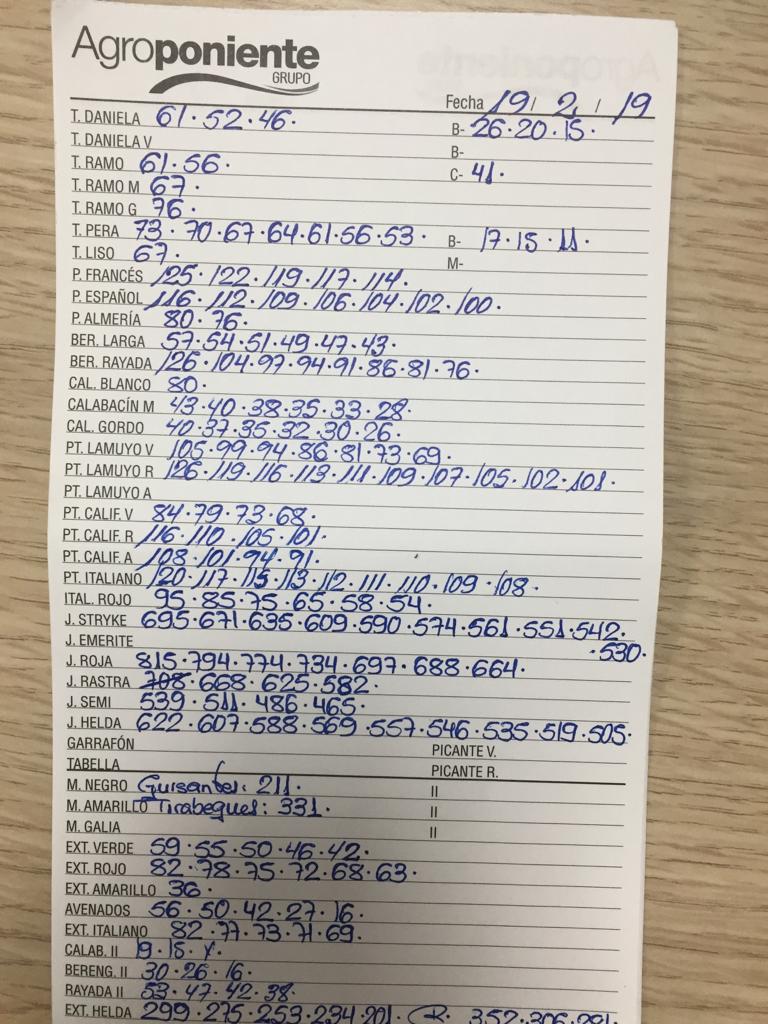 Agroponiente
GRUPO
Fecha 19/ 2 / 19
T. DANIELA 61·52·46· B- 26·20·15·
T. DANIELA V B-
T. RAMO 61·56· C- 41·
T. RAMO M 67·
T. RAMO G 76·
T. PERA 73·70·67·64·61·56·53· B- 17·15·11·
T. LISO 67· M-
P. FRANCÉS 125·122·119·117·114·
P. ESPAÑOL 116·112·109·106·104·102·100·
P. ALMERÍA 80·76·
BER. LARGA 57·54·51·49·47·43·
BER. RAYADA 126·104·97·94·91·86·81·76·
CAL. BLANCO 80·
CALABACÍN M 43·40·38·35·33·28·
CAL. GORDO 40·37·35·32·30·26·
PT. LAMUYO V 105·99·94·86·81·73·69·
PT. LAMUYO R 126·119·116·113·111·109·107·105·102·101·
PT. LAMUYO A
PT. CALIF. V 84·79·73·68·
PT. CALIF. R 116·110·105·101·
PT. CALIF. A 108·101·94·91·
PT. ITALIANO 120·117·115·113·112·111·110·109·108·
ITAL. ROJO 95·85·75·65·58·54·
J. STRYKE 695·671·635·609·590·574·561·551·542·
J. EMERITE ·530·
J. ROJA 815·794·774·734·697·688·664·
J. RASTRA 708·668·625·582·
J. SEMI 539·511·486·465·
J. HELDA 622·607·588·569·557·546·535·519·505·
GARRAFÓN PICANTE V.
TABELLA PICANTE R.
M. NEGRO Guisantes: 211· II
M. AMARILLO Tirabeques: 331· II
M. GALIA II
EXT. VERDE 59·55·50·46·42·
EXT. ROJO 82·78·75·72·68·63·
EXT. AMARILLO 36·
AVENADOS 56·50·42·27·16·
EXT. ITALIANO 82·77·73·71·69·
CALAB. II 19·15·
BERENG. II 30·26·16·
RAYADA II 53·47·42·38·
EXT. HELDA 299·275·253·234·201· R· 352·306·281·